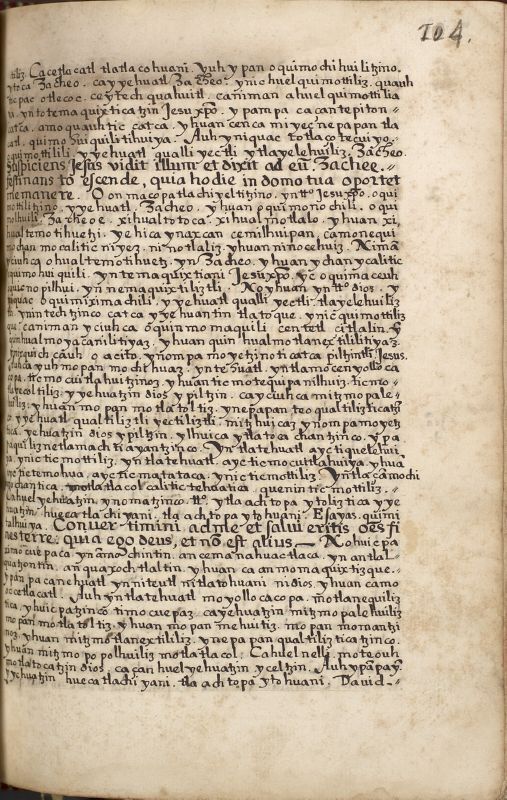 104.
tiliz. Ca ce tlacatl tlatlacohuani. yuh ypan oquimochihuilitzino.
ytoca Zacheo. ca yyehuatl Zacheo. ynic huel quimottiliz. quauh
ticpac otlecoc. ce ytech quahuitl. ca niman ahuel quimottilia
ya. yn totemaquixticatzin Jesu xpo. ypampa ca can tepiton
catca. amo quauhtic catca. yhuan cenca miyec nepapan tla
catl. quimohuiquilitihuiya. Auh yn iquac totlacotecuiyo.
oquimottilili. yyehuatl qualli yectli ytlayelehuiliz. Zacheo.
Suspiciens Jesus vidit illum et dixit ad eum. Zachee.
festinans to escende, quia hodie in domo tua oportet
me manere. Onmacopatlachiyeltitzino. yn tto Jesu xpo. oqui
mottilitzino. yyehuatl. Zacheo. yhuan oquimonochili. oqui
molhuili. Zacheoe. xihualtotoca. xihualmotlalo. yhuan xi
hualtemotihuetzi. yehica yn axcan cemilhuipan, ca monequi
mochan mocalitic niyez. ninotlaliz. yhuan ninocehuiz. Niman
yciuhca ohualtemotihuetz. yn Zacheo. yhuan ychan ycalitic
quimohuiquili. yn temaquixtiani Jesu xpo. yc oquimaceuh
quicnopilhui. yn inemaquixtiliz tli. No yhuan yn tto dios. y
niquac oquimiximachili. yyehuatl qualli yectli. tlayelehuiliz
tli. yn intechtzinco catca yyehuantin tlatoque. ynic quimottiliz
que. ca niman yciuhca oquinmomaquili centetl citlalin. y
quinhualmoyacaniliti yaz. yhuan quinhualmotlanextililiti yaz.
ynixquich cauh oacito. ynompa moyetzinoticatca piltzintli Jesus.
yuhca yuh mopan mochihuaz. yn tehuatl. yntlamocenyollocaco
pa. ticmocuitlahuitzinoz. yhuan ticmotequipanilhuiz. ticmo
tlayecoltiliz. yyehuatzin dios ypiltzin. ca yciuhca mitzmopale
huiliz. yhuan mopan motlatoltiz. ynepapan teoqualtilizticatzin
co. yyehuatl qualtiliztli yectiliztli. mitzhuicaz ynompa moyetz
tica. yehuatzin dios ypiltzin. ylhuicaytlatocachantzinco. ypa
paquiliznetlamachtiayantzinco. Yntla tehuatl ayc tiquelehui
ya. ynic ticmottiliz. yntla tehuatl. ayc ticmocuitlahuiya. yhua
ayc tictemohua. ayc ticmatataca. ynic ticmottiliz. Yntlacamo chi
mochantica. motlatlacolcalitic tehuatica. quenin ticmottiliz.
Ca huel yehuatzin ynomatzinco. tto. ytlaachtopaytoliztica yye
huatzin. huecatlachiyani. tlaachtopaytohuani. Esayas. quimi
talhuiya. Convertimini ad me et salvi eritis oes fi
nes terre: quia ego deus, et no est alius — Nohuicpa
ximocuepaca ynamochintin. ancemanahuactlaca. ynantlal
quatzontin. anquaxochtlaltin. yhuan ca anmomaquixtizque.
ypanpa ca nehuatl ynniteutl nitlatohuani nidios. yhuan camo
occetlacatl. Auh yntla tehuatl moyollocacopa. motlanequiliz
tica. yhuicpatzinco timocuepaz. ca yehuatzin mitzmopalehuiliz
mopan motlatoltiz. yhuan mopan mehuitiz. mopan momantzi
noz. yhuan mitzmotlanextililiz. ynepapan qualtilizticatzinco.
yhuan mitzmopopolhuiliz motlatlacol. Ca huel nelli moteouh
motlatocatzin dios. ca çan huel yehuatzin yceltzin. Auh ypapay.
yyehuatzin huecatlachiyani. tlaachtopaytohuani. David